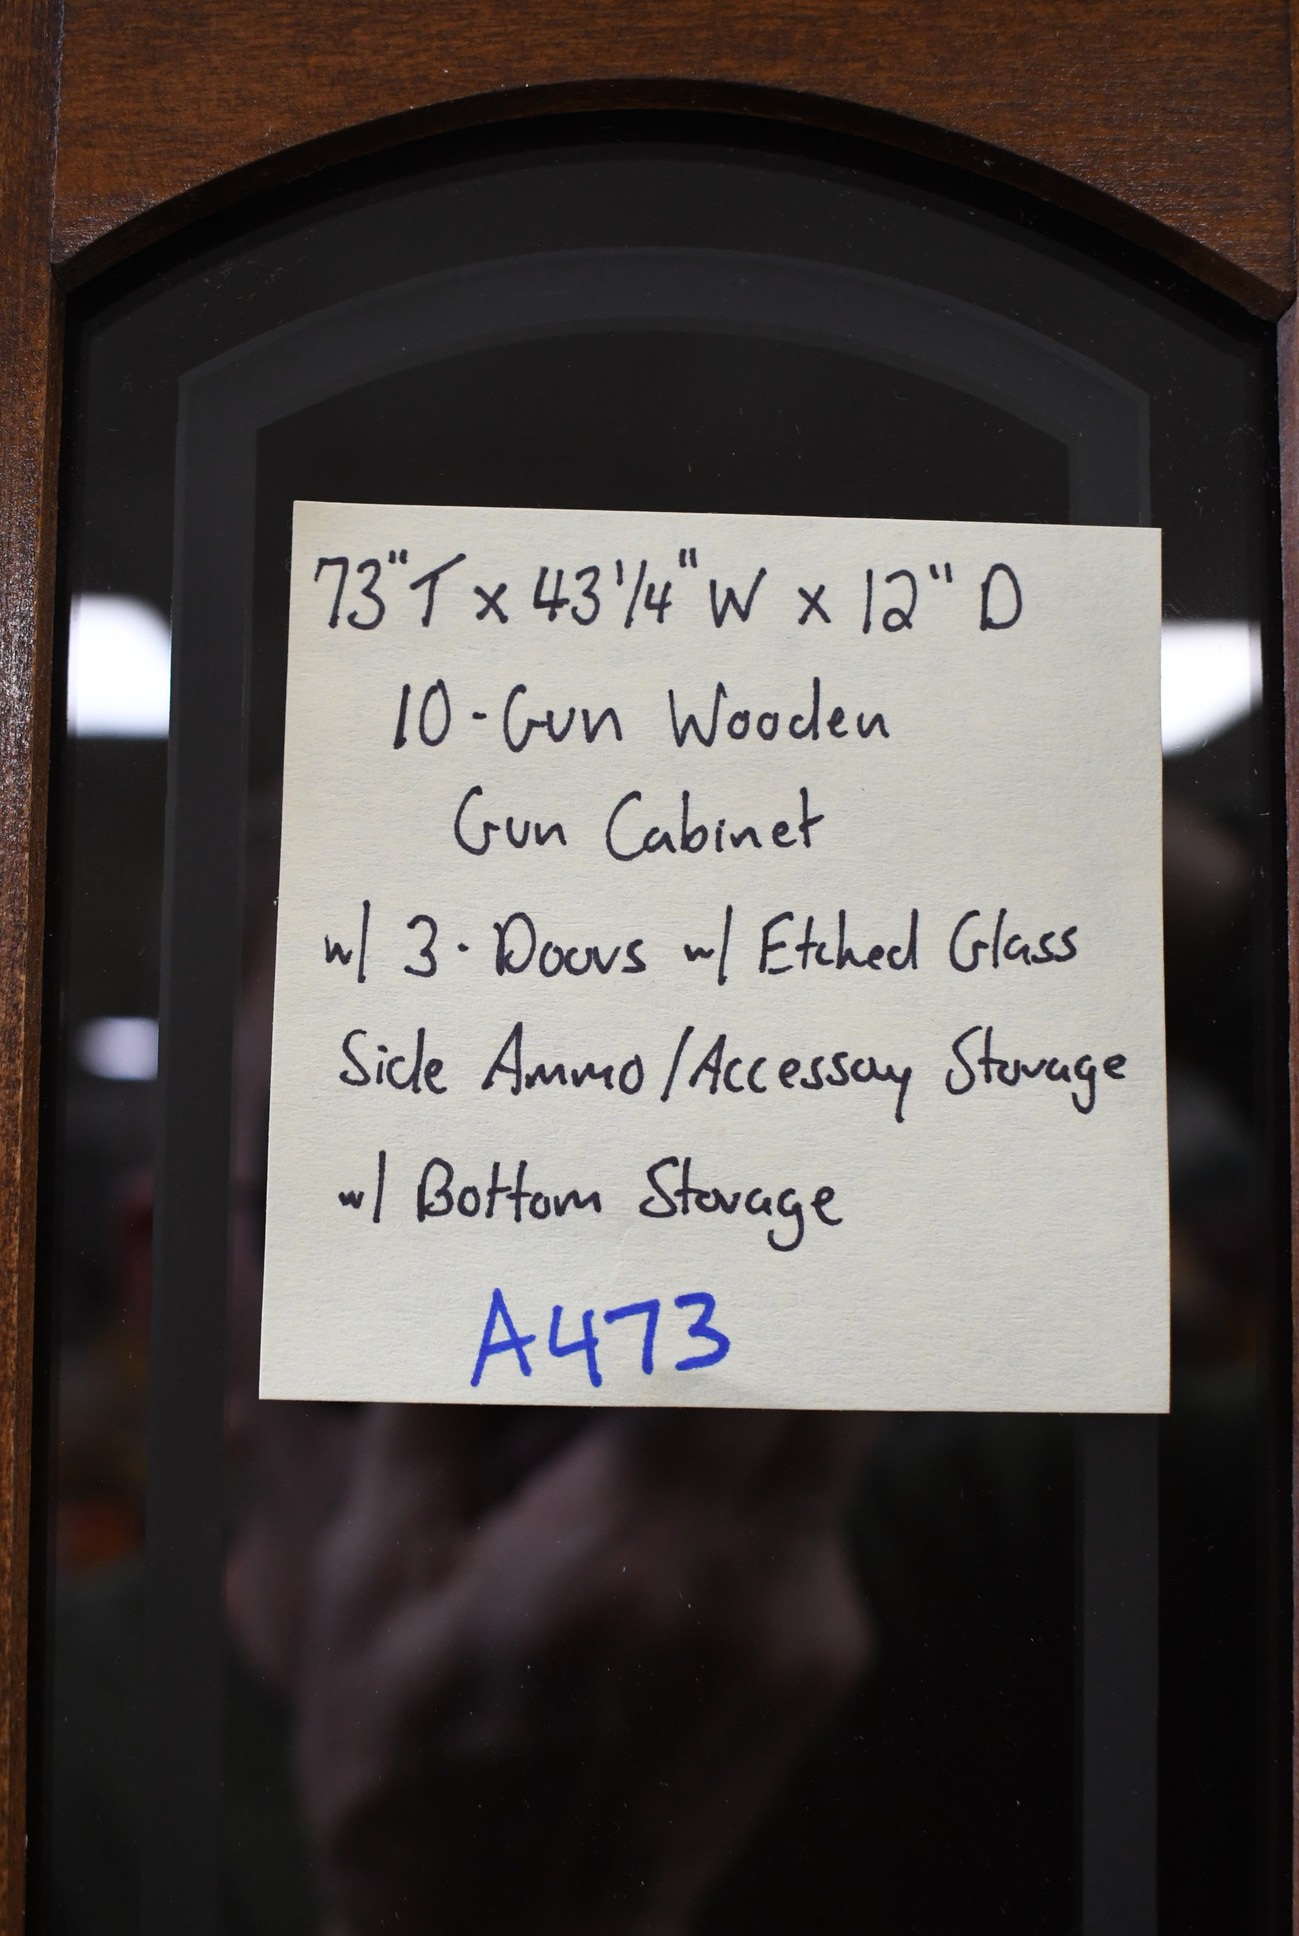 73" T x 43 1/4" W x 12" D
10-Gun Wooden
Gun Cabinet
w/ 3-Doors w/ Etched Glass
Side Ammo/Accessory Storage
w/ Bottom Storage
A473